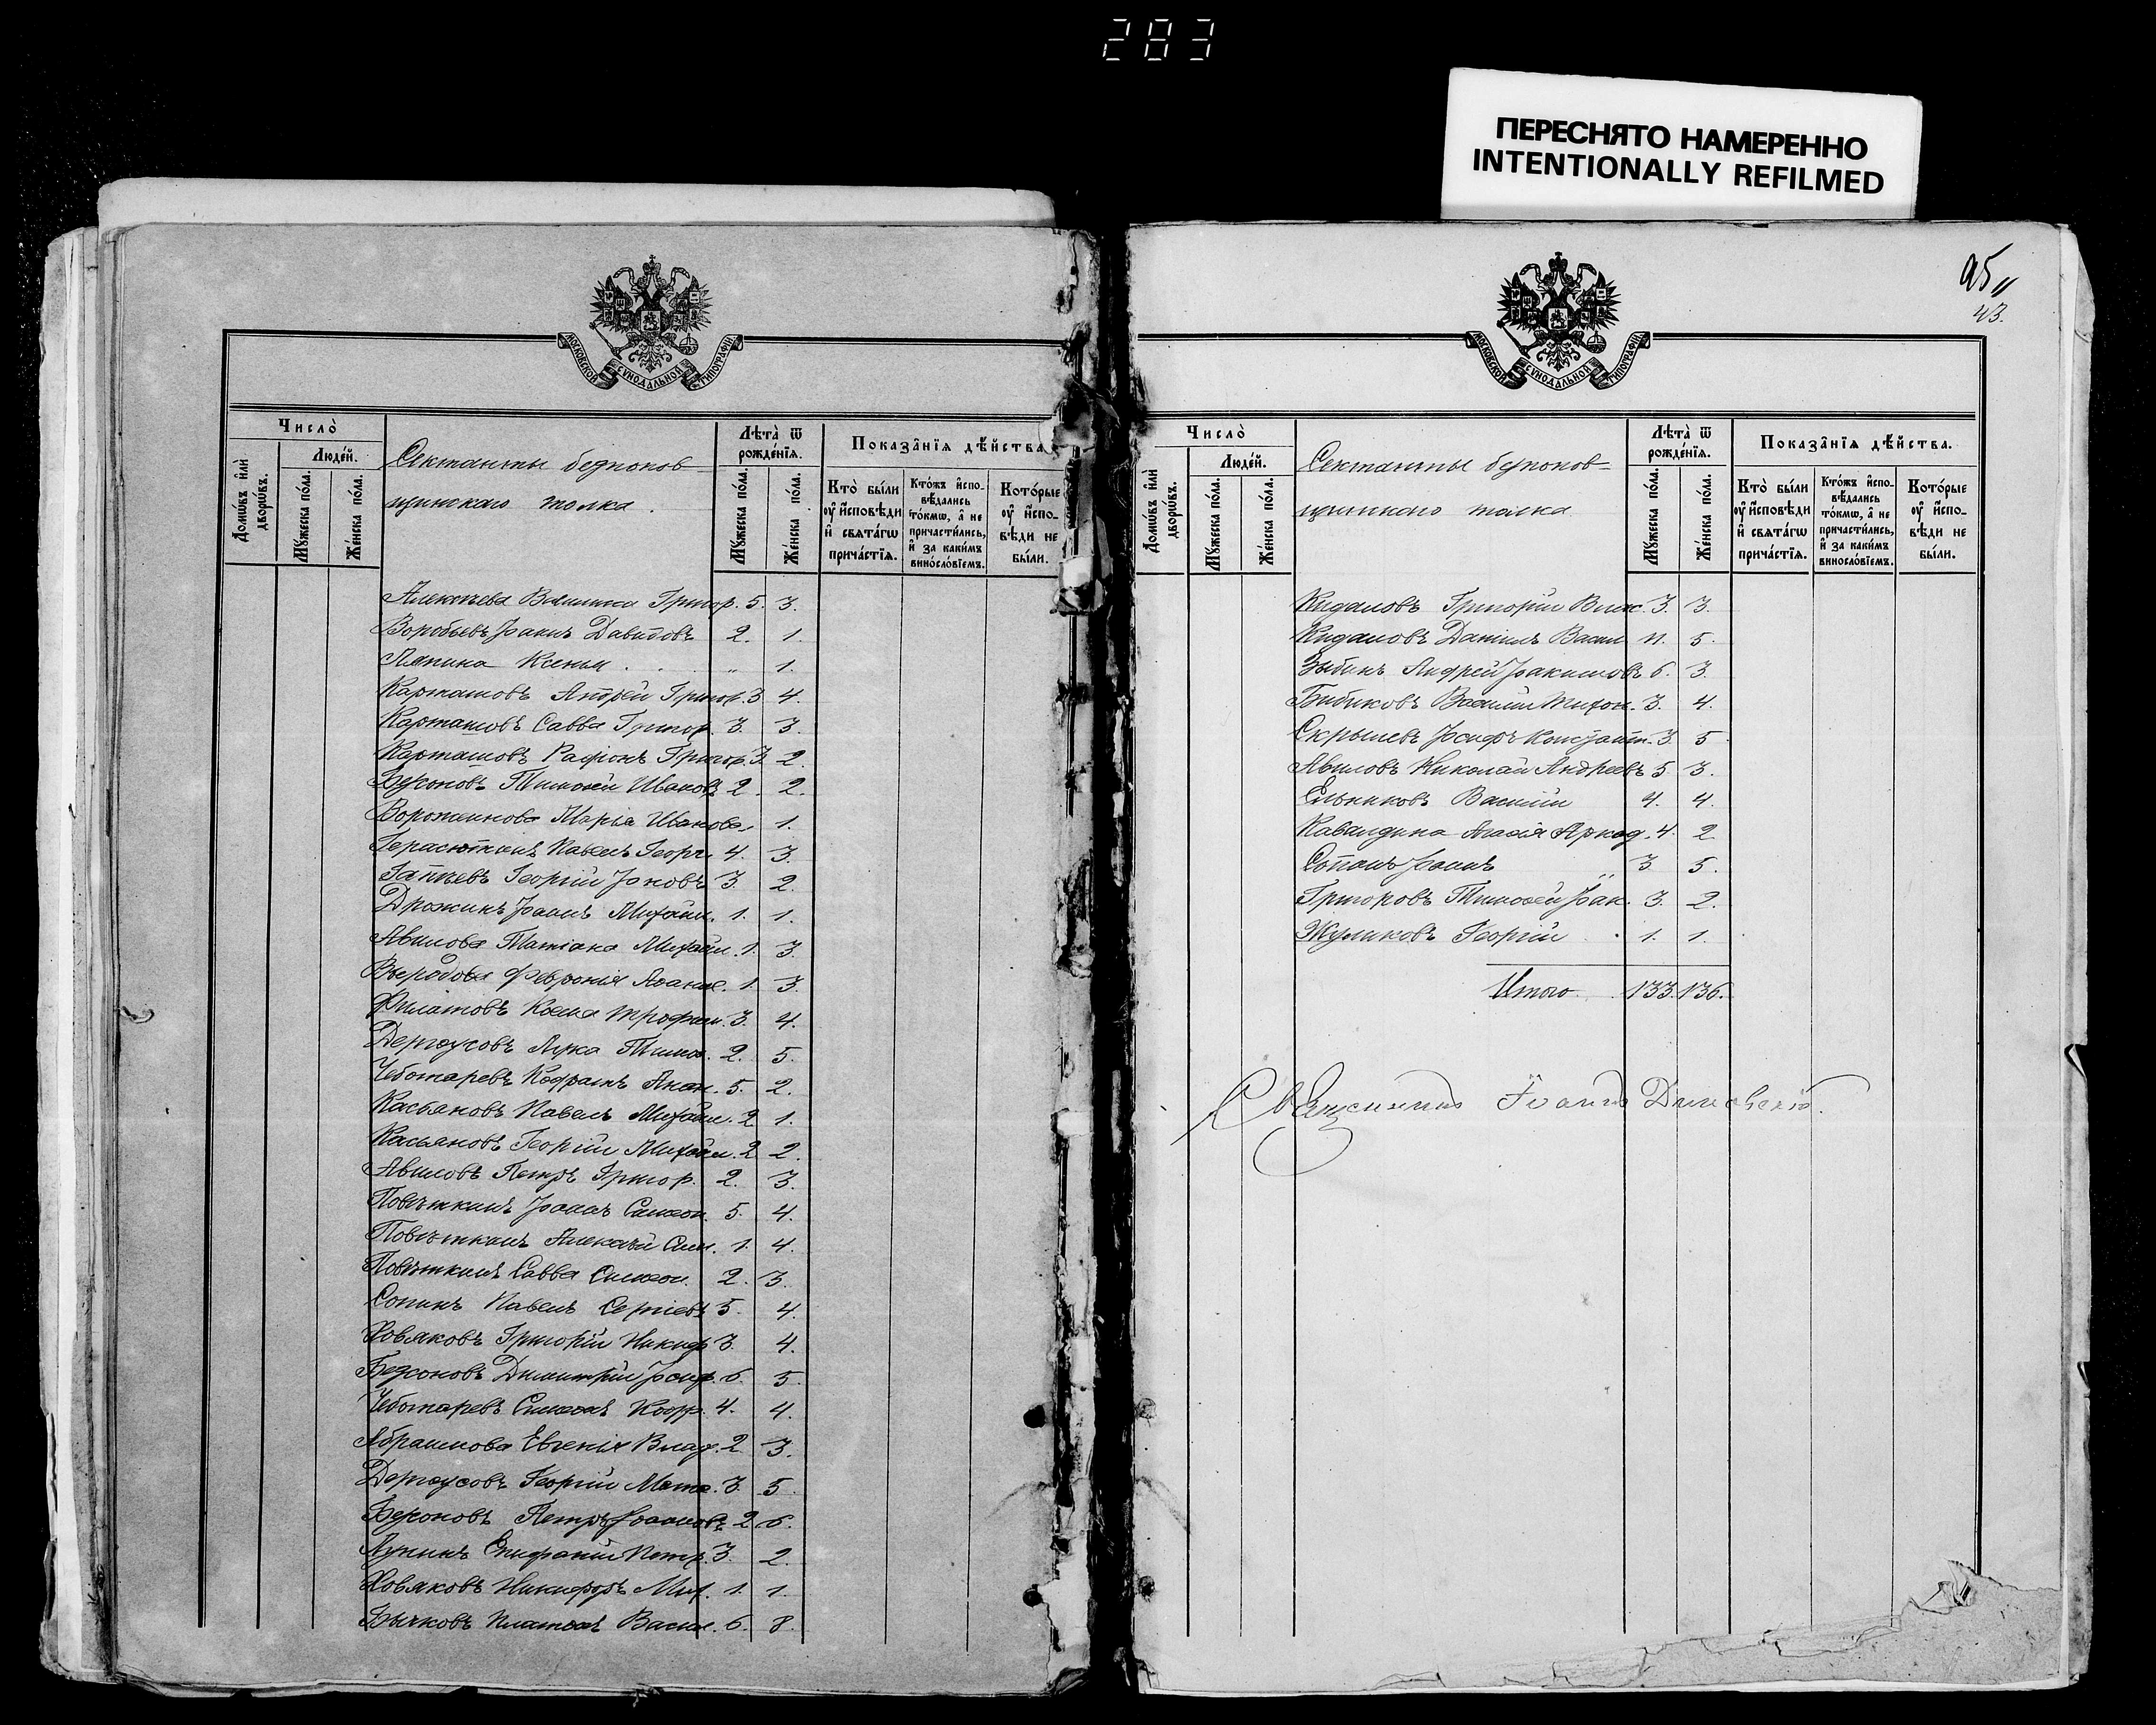 283
ПЕРЕСНЯТО НАМЕРЕННО
INTENTIONALLY REFILMED
МОСКОВСКОЙ СѴНОДАЛЬНОЙ ТИПОГРАФІИ
Число̀
Домѡ́въ и҆лѝ дворѡ́въ.
Люде́й.
Мꙋ́жеска по́ла.
Же́нска по́ла.
Сектанты безпопов-
щинскаго толка.
Лѣта̀ ѿ рожде́нїѧ.
Мꙋ́жеска по́ла.
Же́нска по́ла.
Показа̑нїѧ дѣ́йства
Кто̀ бы́ли ᲂу҆ и҆сповѣди и҆ свѧта́гѡ прича́стїѧ.
Кто́жъ и҆спо-вѣ́дались то́кмѡ, а҆ не причасти́лись, и҆ за каки́мъ виносло́вїемъ.
Кото́рые ᲂу҆ и҆спо-вѣди не бы́ли.
Алексѣева Василиса Григор. 5. 3.
Воробьевъ Іоаннъ Давидовъ 2. 1.
Ляпина Ксенія . . . „ 1.
Карташовъ Андрей Григор. 3 4.
Карташовъ Савва Григор. 3. 3.
Карташовъ Родіонъ Григор. 3. 2.
Безсоновъ Тимоѳей Ивановъ 2. 2.
Марья Иванова 1.
Павелъ Георг. 4. 3.
Георгій Яковъ 3. 2.
Дрожинъ Іоаннъ Михаил. 1. 1.
Авилова Татіана Михаил. 1. 3.
Феѵронія Аѳанас. 1. 3.
Филатовъ Косма Трофим. 3. 4.
Дергоусовъ Лука Тимоѳ. 2. 5.
Чеботаревъ Анан. 5. 2.
Касьяновъ Павелъ Михаил. 2 1.
Касьяновъ Георгій Михаил. 2 2.
Авиловъ Петръ Григор. 2. 3.
Повѣткинъ Іоаннъ Симеон. 5. 4.
Повѣткинъ Алексѣй Сим. 1. 4.
Повѣткинъ Савва Симеон. 2. 3.
Сопинъ Павелъ Сергіевъ 5. 4.
Ховяковъ Григорій Никиф. 3. 4.
Безсоновъ Димитрій Іосиф. 6. 5.
Чеботаревъ Симеонъ 4. 4.
Абрашнова Евгенія Влад. 2 3.
Дергоусовъ Георгій Матѳ. 3. 5.
Безсоновъ Петръ Іоанновъ 2 6.
Лунинъ Епифаній Петр. 3. 2.
Ховяковъ Никифоръ Мих. 1. 1.
Бычковъ Платонъ Васил. 6. 8.
95„
43.
МОСКОВСКОЙ СѴНОДАЛЬНОЙ ТИПОГРАФІИ
Число̀
Домѡ́въ и҆лѝ дворѡ́въ.
Люде́й.
Мꙋ́жеска по́ла.
Же́нска по́ла.
Сектанты безпопов-
щинскаго толка
Лѣта̀ ѿ рожде́нїѧ.
Мꙋ́жеска по́ла.
Же́нска по́ла.
Показа̑нїѧ дѣ́йства.
Кто̀ бы́ли ᲂу҆ и҆сповѣди и҆ свѧта́гѡ прича́стїѧ.
Кто́жъ и҆спо-вѣ́дались то́кмѡ, а҆ не причасти́лись, и҆ за каки́мъ виносло́вїемъ.
Кото́рые ᲂу҆ и҆спо-вѣди не бы́ли.
Кидаловъ Григорій 3. 3.
Кидаловъ Даніилъ Васил 5.
Зыбинъ Андрей Іоакимовъ 6. 3.
Бибиковъ Василій Тихон. 3. 4.
Скрылевъ Іосифъ Констант. 3. 5
Авиловъ Николай Андреевъ 5. 3.
Ельниковъ Василій 4. 4.
Аркад. 4. 2
Іоаннъ 3 5.
Григоровъ Тимоѳей Іоан. 3. 2.
Жуликовъ Георгій . 1. 1.
Итого 133. 136.
Священникъ Іоаннъ